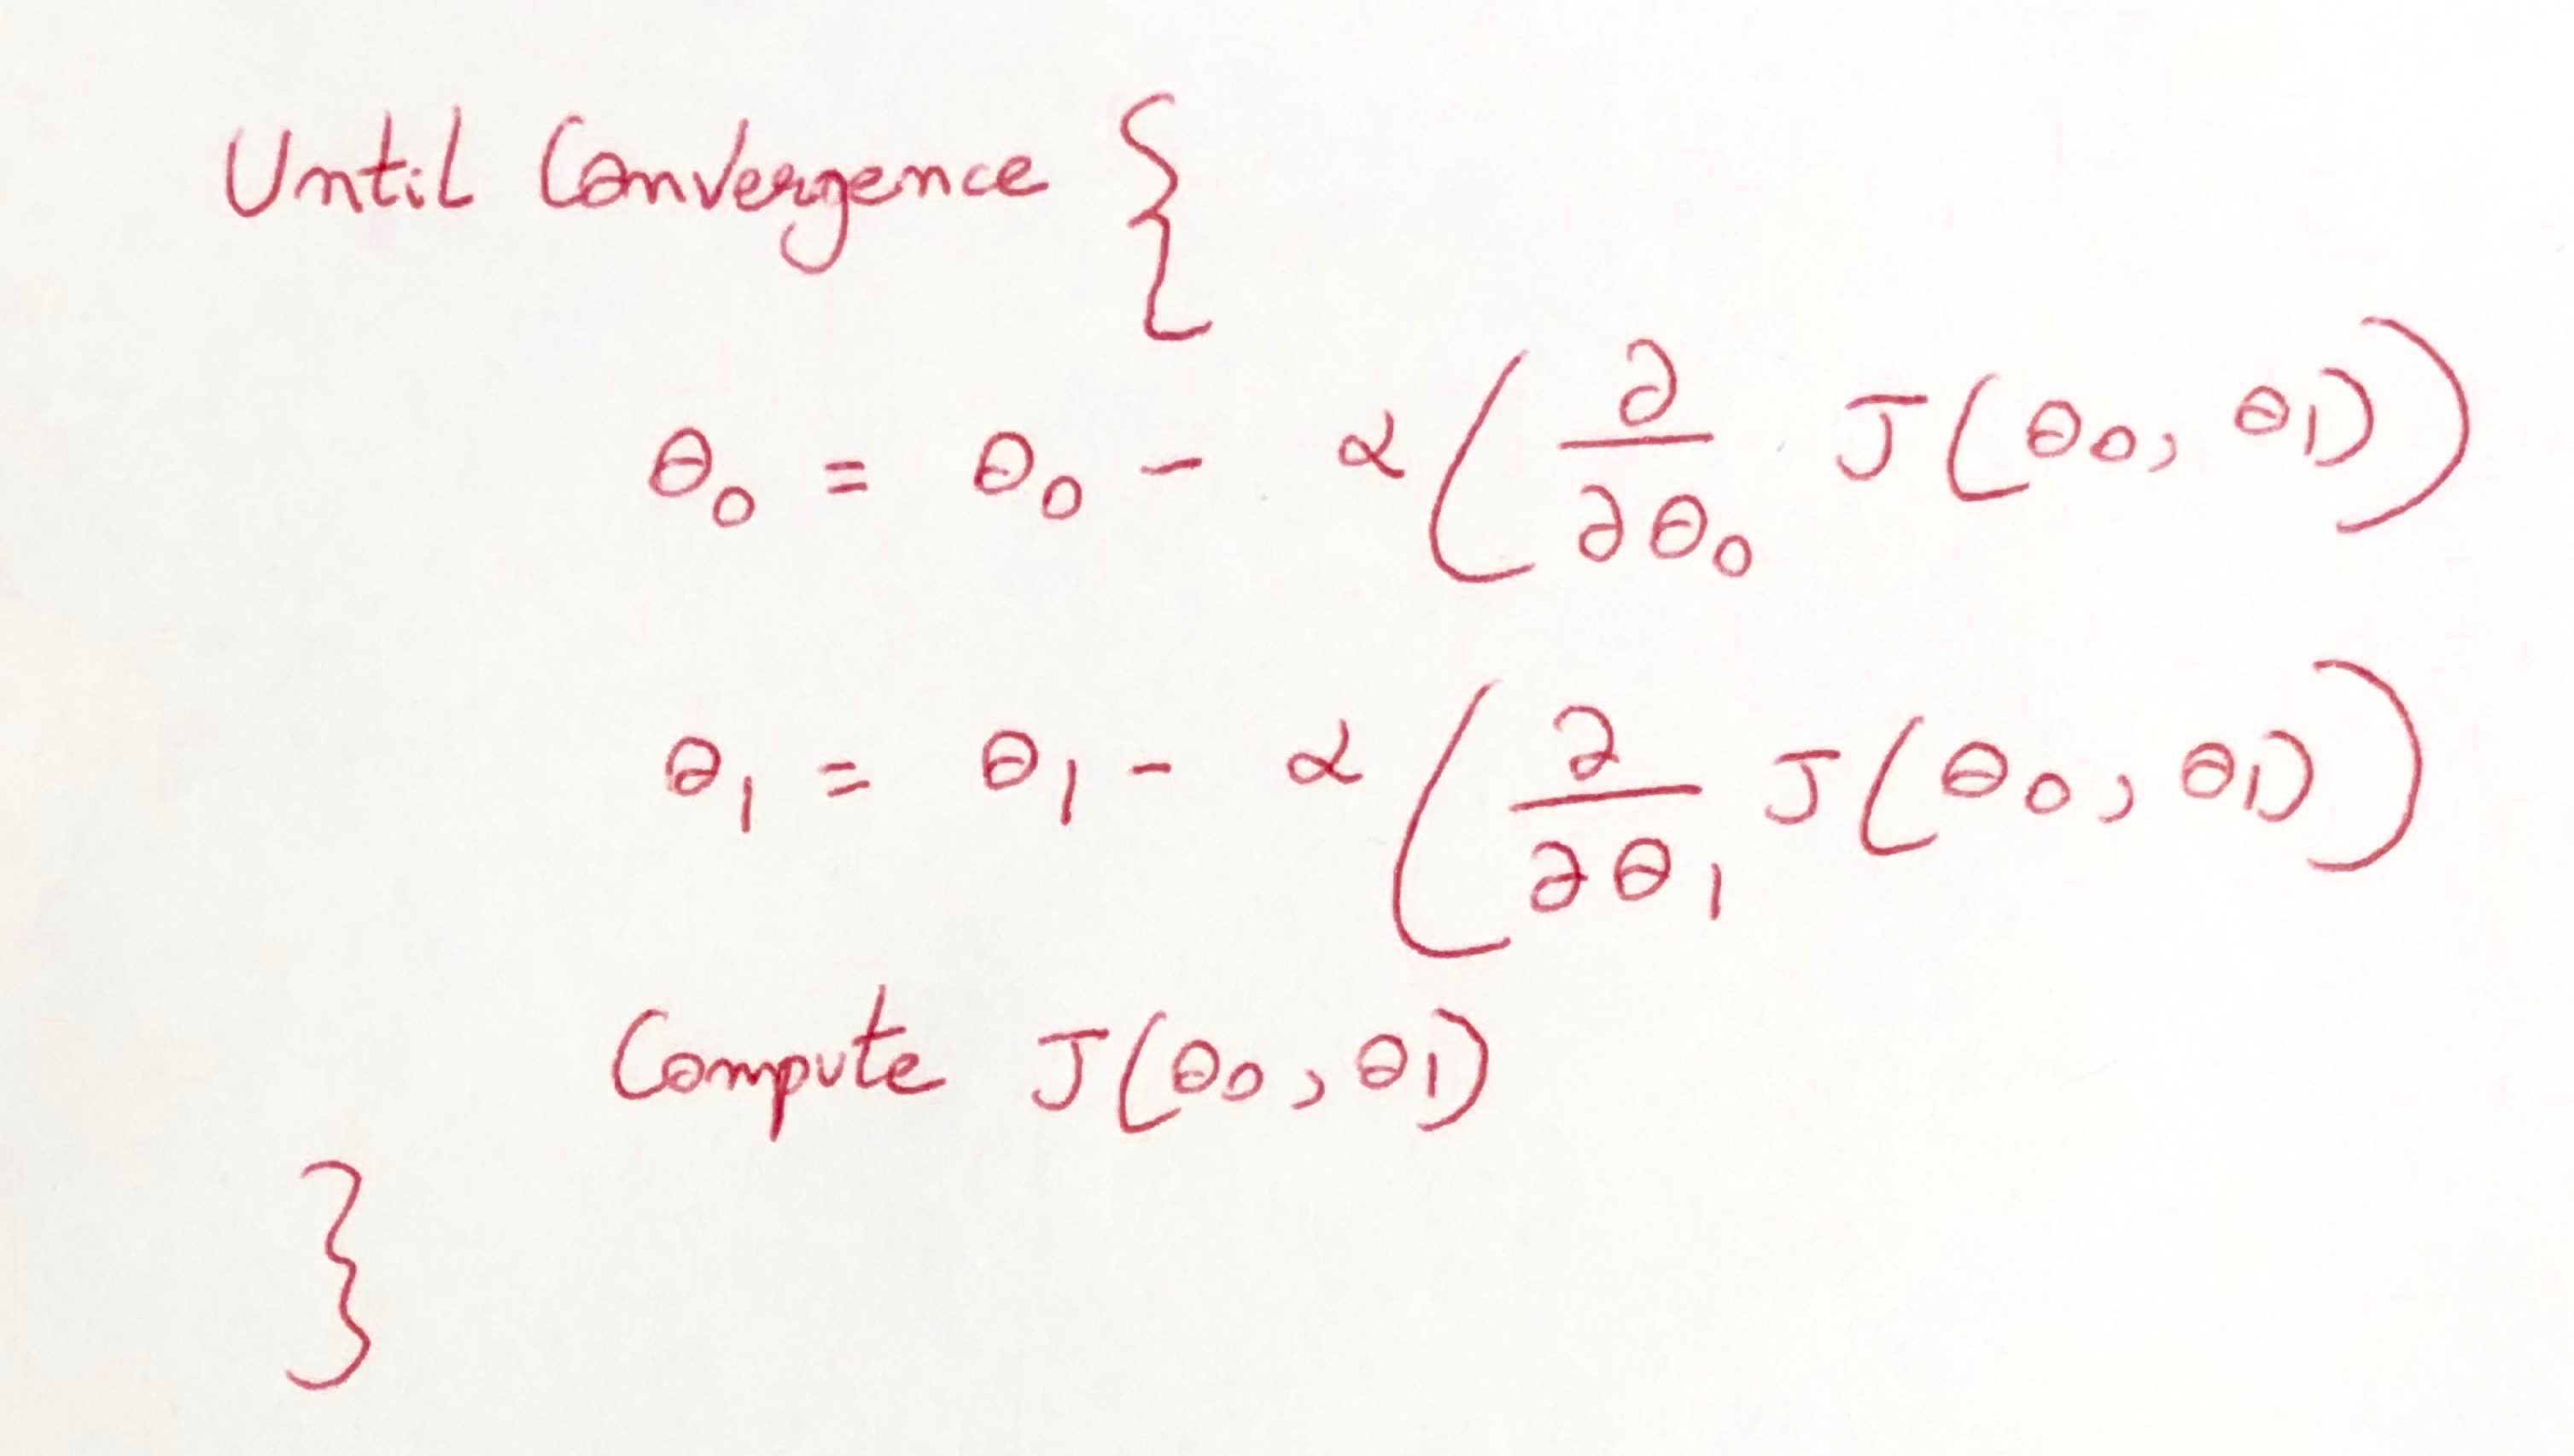 Until Convergence {
θ₀ = θ₀ - α ( ∂/∂θ₀ J(θ₀, θ₁) )
θ₁ = θ₁ - α ( ∂/∂θ₁ J(θ₀, θ₁) )
Compute J(θ₀, θ₁)
}